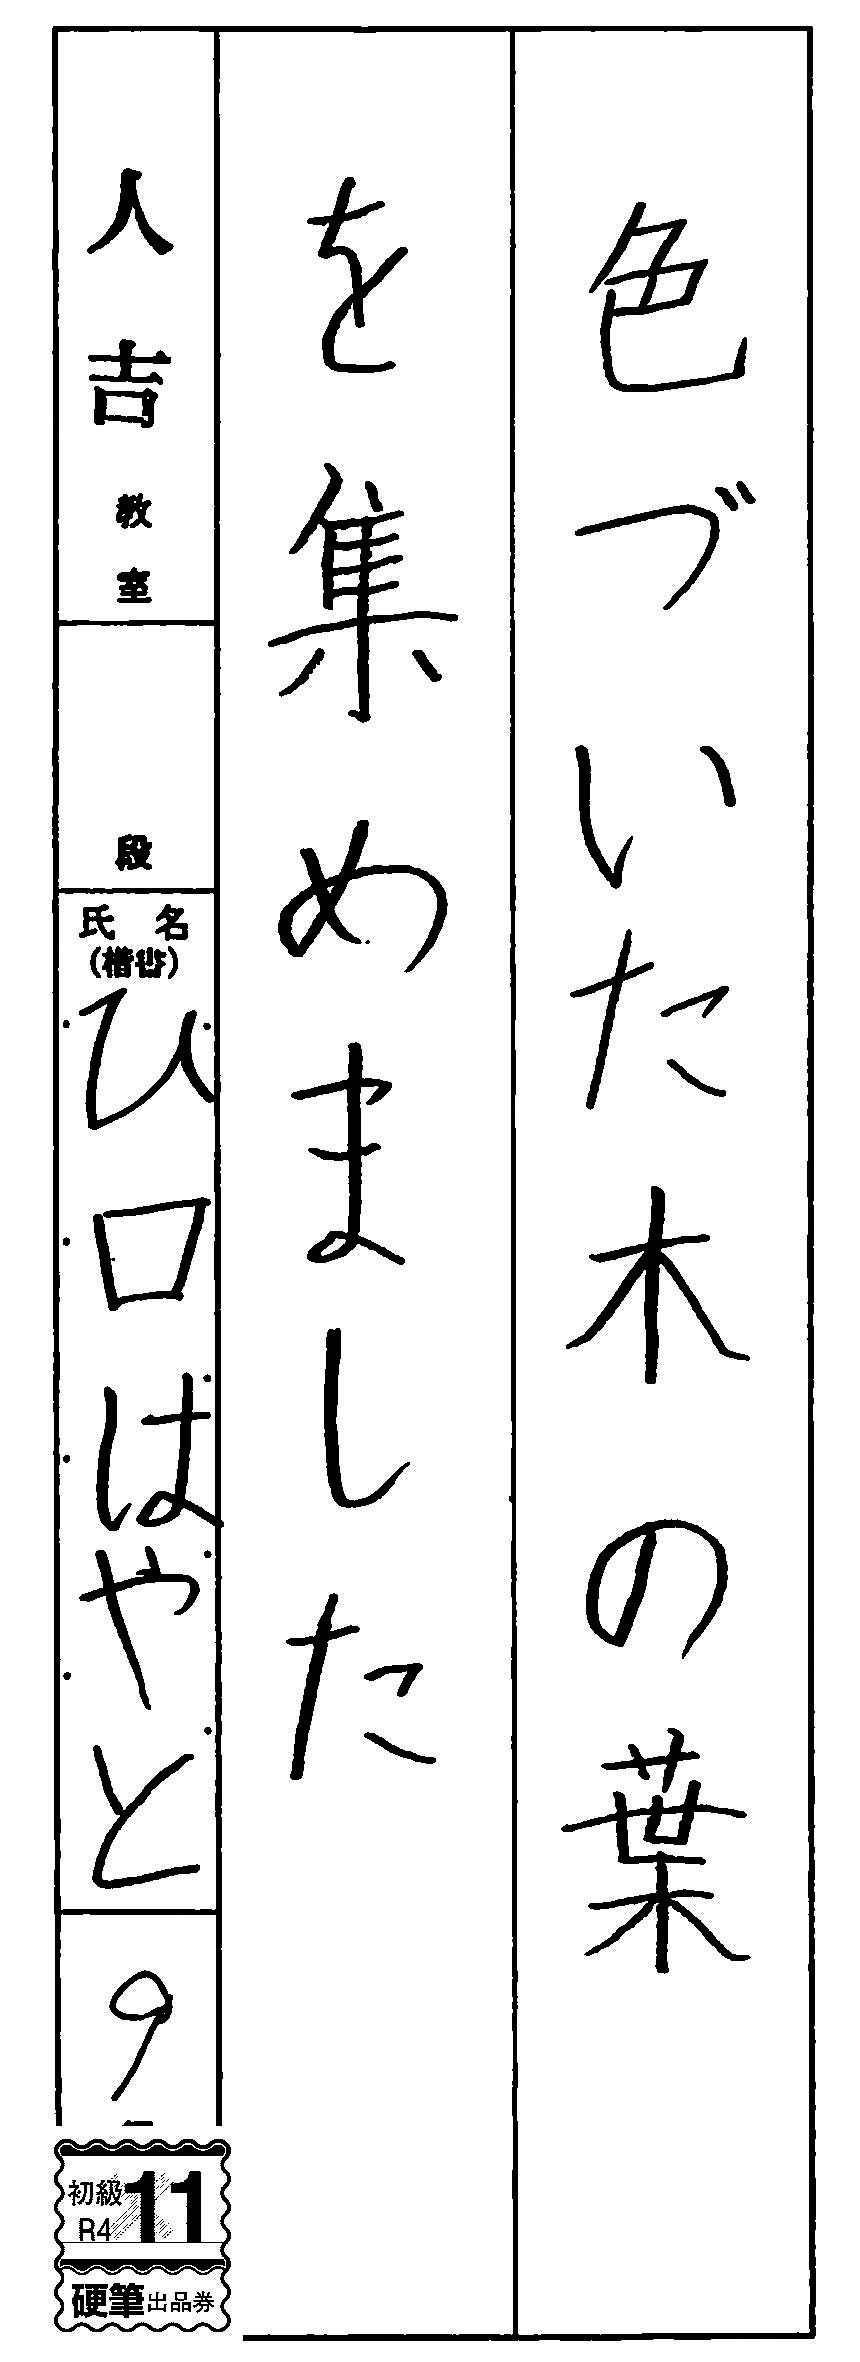 色づいた木の葉
を集めました
人吉教室
段
氏名
(楷書)
ひ口はやと
9
初級
R4
11
硬筆出品券